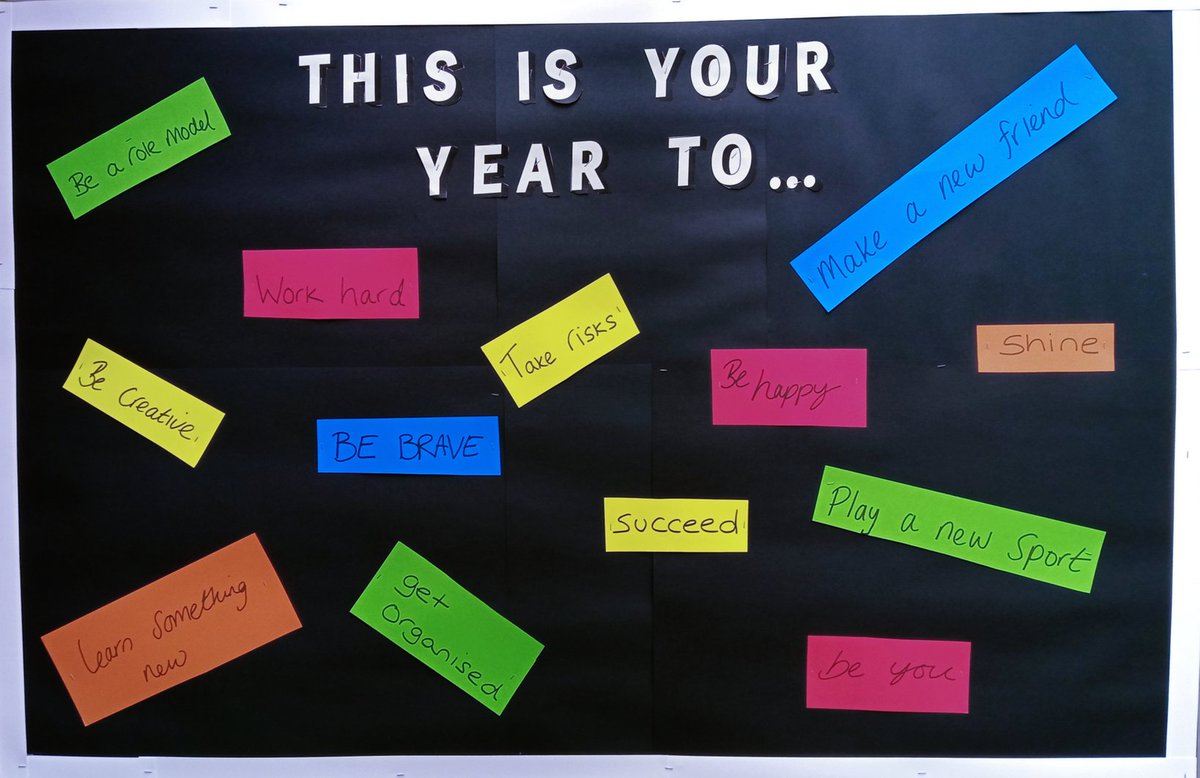 THIS IS YOUR
YEAR TO...
Be a role model
Make a new friend
Work hard
Take risks
Shine
Be happy
Be Creative
BE BRAVE
Succeed
Play a new Sport
Learn Something
new
get
organised
be you